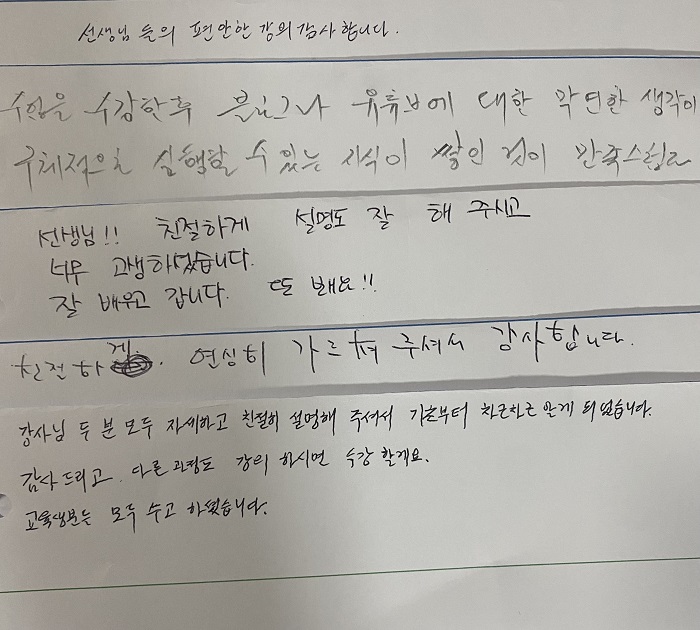 선생님 들의 편안한 강의감사합니다.
수업을 수강한후 블로그나 유튜브에 대한 막연한 생각이
구체적으로 실행할 수 있는 지식이 쌓인 것이 만족스럽고
선생님!! 친절하게 설명도 잘 해 주시고
너무 고생하셨습니다.
잘 배우고 갑니다. 또 봬요!!
친절하게. 열심히 가르쳐 주셔서 감사합니다.
강사님 두 분 모두 자세하고 친절히 설명해 주셔서 기초부터 차근차근 알게 되었습니다.
감사드리고. 다른 과정도 강의 하시면 수강 할게요.
모두 수고 하셨습니다.